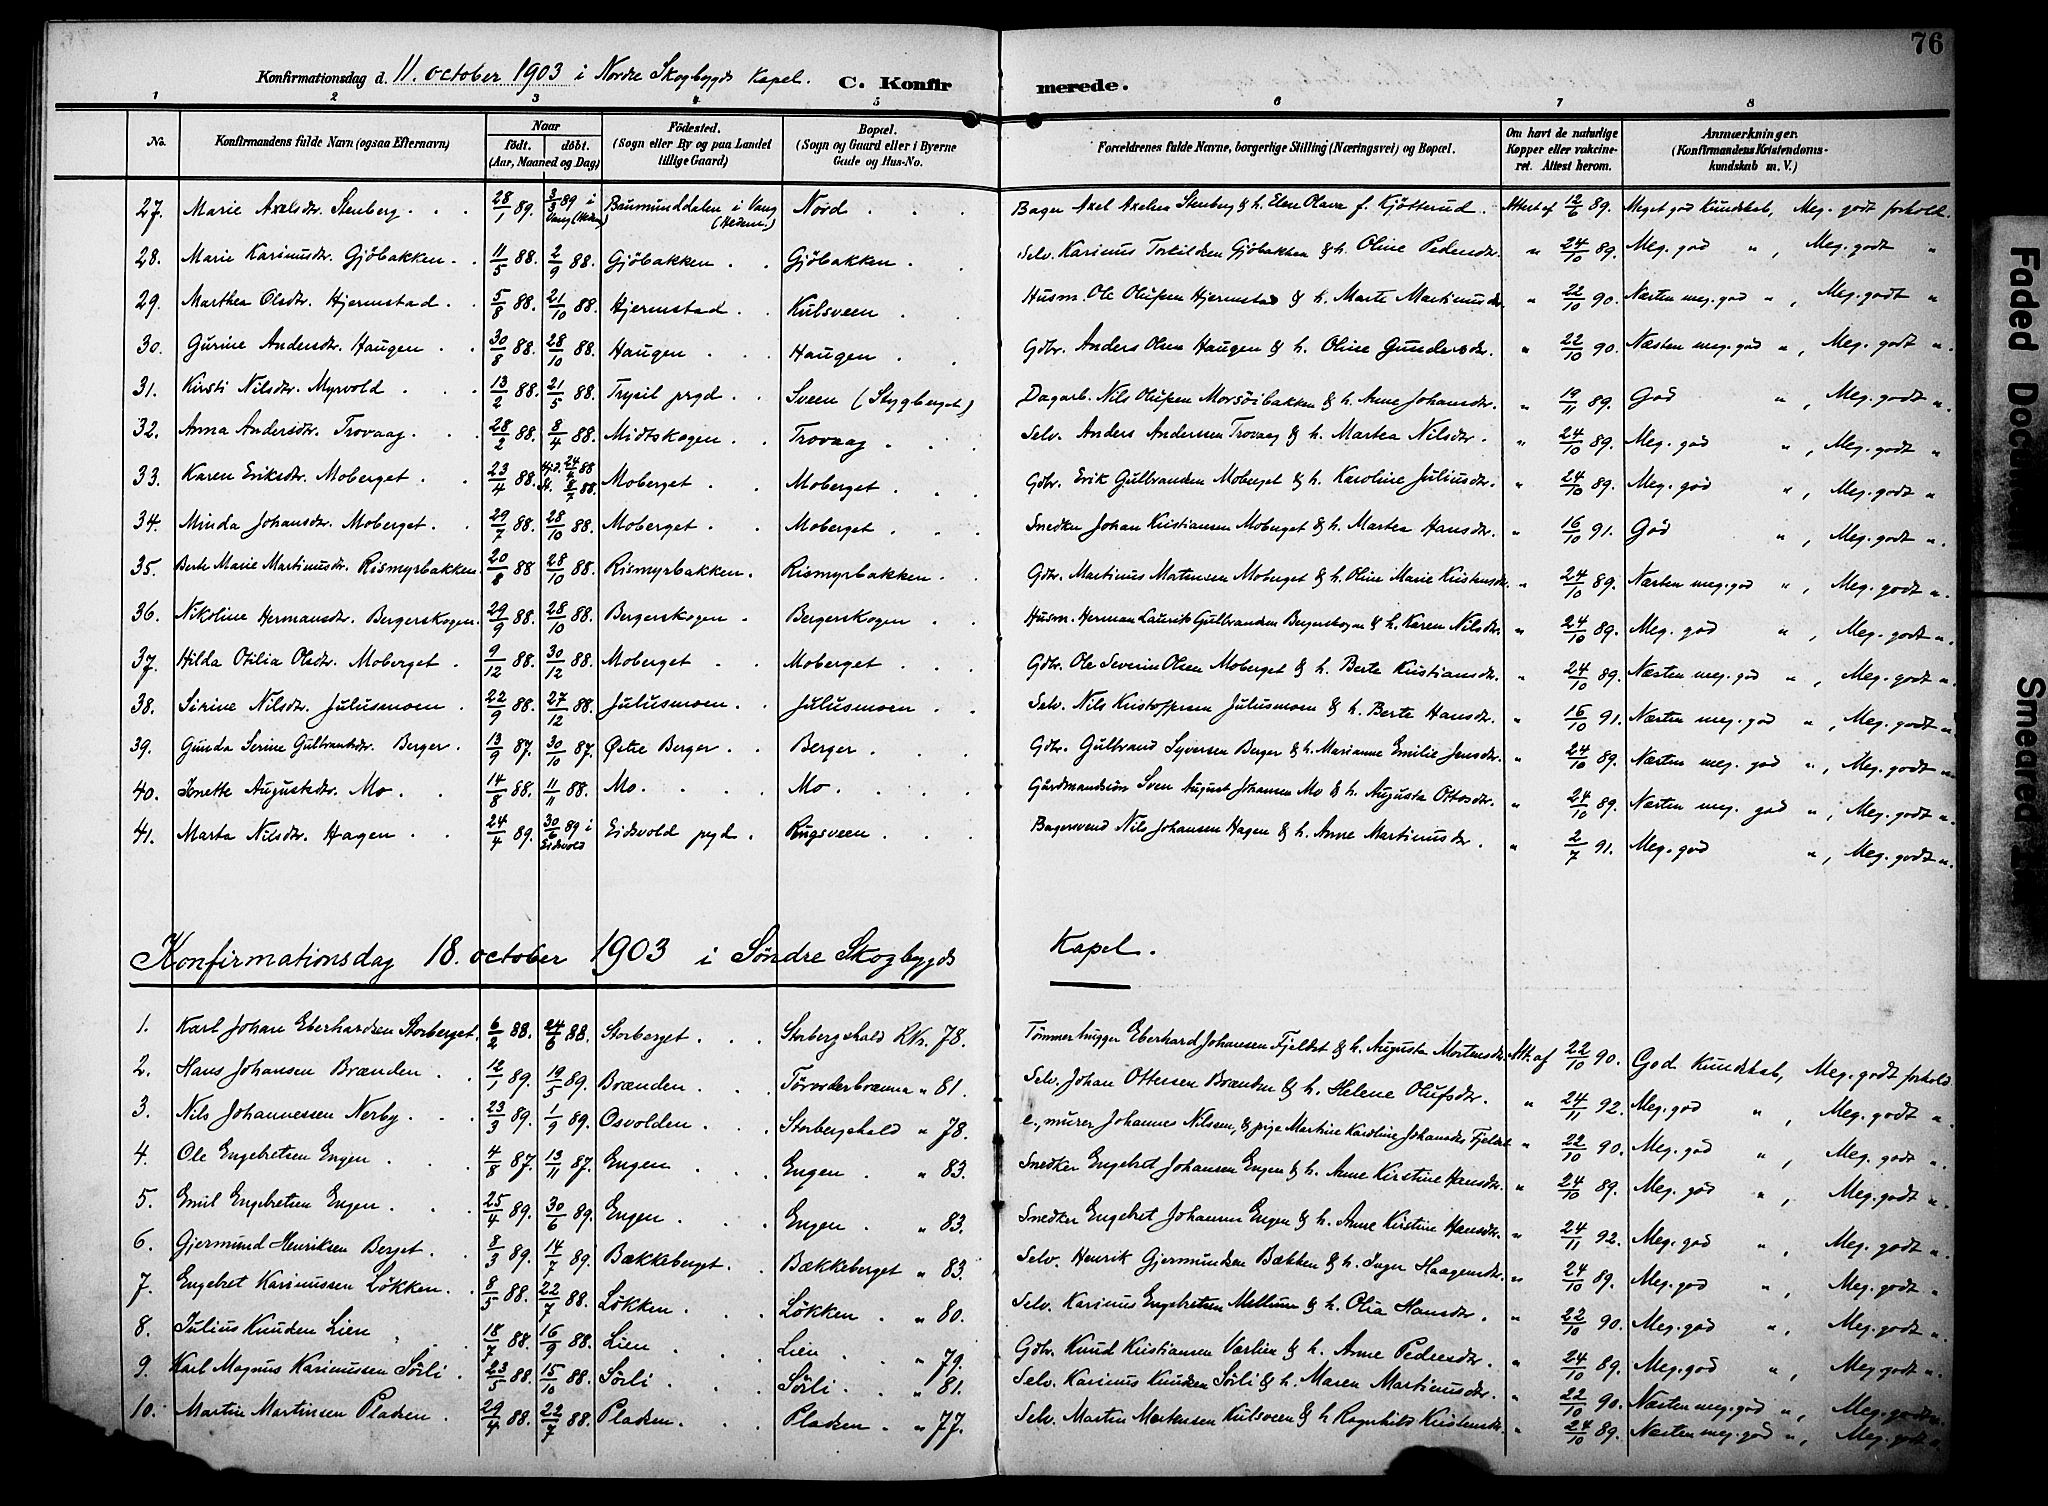 76
Konfirmationsdag d. 11. october 1903 i Nordre Skogbygds Kapel. C. Konfir merede.
1 2 3 4 5 6 7 8
No. Konfirmandens fulde Navn (ogsaa Efternavn) Naar født. døbt. (Aar, Maaned og Dag) Födested. (Sogn eller By og paa Landet tillige Gaard) Bopæl. (Sogn og Gaard eller i Byerne Gade og Hus-No. Forældrenes fulde Navne, borgerlige Stilling (Næringsvei) og Bopæl. Om havt de naturlige Kopper eller vakcineret. Attest herom. Anmærkninger. (Konfirmandens Kristendomskundskab m. V.)
27. Marie Axelsdtr. Stenberg 28/1 89. 3/3 89 i Vang (Hedem) Brumunddalen i Vang (Hedem.) Nord Bager Axel Axelsen Stenberg & h. Elen Olava f. Kjøtterud. Attest af 12/6 89. Meget god Kundskab, Meg. godt forhold.
28. Marie Karinusdtr. Gjöbakken 11/5 88. 2/9 88. Gjöbakken Gjöbakken Selv. Karinus Torkildsen Gjöbakken & h. Oline Pedersdtr. " 24/10 89. Meg. god " , Meg. godt "
29. Marthea Olsdtr. Hjermstad 5/8 88. 21/10 88. Hjermstad Kulsveen Husm. Ole Olufsen Hjermstad & h. Marte Martinusdtr. " 22/10 90. Næsten meg. god " , Meg. godt "
30. Gurine Andersdtr. Haugen 30/8 88. 28/10 88. Haugen Haugen Gdbr. Anders Olsen Haugen & h. Oline Gundersdtr. " 22/10 90. Næsten meg. god " , Meg. godt "
31. Kirsti Nilsdtr. Myrvold 13/2 88. 21/5 88. Trysil prgd Sveen (Stygberget) Dagarb. Nils Olufsen Morsøibakken & h. Anne Johansdtr. " 19/11 89. God " , Meg. godt "
32. Anna Andersdtr. Trovaag 28/2 88. 8/4 88. Midtskogen Trovaag Selv. Anders Andersen Trovaag & h. Martea Nilsdtr. " 24/10 89. Meg. god " , Meg. godt "
33. Karen Eriksdtr. Moberget 23/4 88. Hjd. 24/4 88 St. 8/7 88. Moberget Moberget Gdbr. Erik Gulbrandsen Moberget & h. Karoline Juliusdtr. " 24/10 89. Meg. god " , Meg. godt "
34. Minda Johansdtr. Moberget 29/7 88. 28/10 88. Moberget Moberget Snedker Johan Kristiansen Moberget & h. Martea Hansdtr. " 16/10 91. God " , Meg. godt "
35. Berte Marie Martinusdtr. Rismyrbakken 20/8 88 28/10 88. Rismyrbakken. Rismyrbakken Gdbr. Martinus Matensen Moberget & h. Oline Marie Kristensdtr. " 24/10 89. Næsten meg. god " , Meg. godt "
36. Nikoline Hermansdtr. Bergerskogen. 29/9 88. 28/10 88. Bergerskogen Bergerskogen Husm. Herman Laurits Gulbrandsen Bergerskogen & h. Karen Nilsdtr. " 24/10 89. Meg. god " , Meg. godt "
37. Hilda Otilia Olsdtr. Moberget 9/12 88. 30/12 88. Moberget Moberget Gdbr. Ole Severin Olsen Moberget & h. Berte Kristiansdtr. " 24/10 89. Næsten meg. god " , Meg. godt "
38. Sirine Nilsdtr. Julusmoen 22/9 88. 27/12 88. Julusmoen Julusmoen Selv. Nils Kristoffersen Julusmoen & h. Berte Hansdtr. " 16/10 91. Næsten meg. god " , Meg. godt "
39. Gunda Serine Gulbrandsdtr. Berger 13/9 87. 30/10 87. Øvre Berger Berger Gdbr. Gulbrand Syversen Berger & h. Marianne Emilie Jensdtr. " 24/10 89. Næsten meg. god " , Meg. godt "
40. Jenette Augustsdtr. Mo 14/8 88. 11/11 88. Mo Mo Gårdmandssön Sven August Johansen Mo & h. Augusta Ottosdtr. " 24/10 89. Næsten meg. god " , Meg. godt "
41. Marta Nilsdtr. Hagen 24/4 89. 30/6 89 i Eidsvold Eidsvold prgd Rugsveen Bagersvend Nils Johansen Hagen & h. Anne Martinusdtr. " 2/7 91. Meg. god " , Meg. godt "
Konfirmationsdag 18. october 1903 i Søndre Skogbygds Kapel.
1. Karl Johan Eberhardsen Storberget 6/2 88. 24/6 88. Storberget Storbergshald RNr. 78. Tømmerhugger Eberhard Johansen Fjeldset & h. Augusta Mortensdtr. Att. af 22/10 90. God Kundskab, Meg. godt forhold
2. Hans Johansen Brænden 12/1 89. 19/5 89. Brænden Törorderbrænna " 81. Selv. Johan Ottersen Brænden & h. Helene Olufsdtr. " 24/11 92. Meg. god " , Meg. godt "
3. Nils Johannessen Nerby 23/3 89. 1/9 89. Osvolden Storbergshald " 78. e., murer Johannes Nilsen, & pige Martine Karoline Johansdtr Fjeldset " 22/10 90. Meg. god " , Meg. godt "
4. Ole Engebretsen Engen 4/8 87. 13/11 87. Engen Engen " 83. Snedker Engebret Johansen Engen & h. Anne Kirstine Hansdtr. " 24/10 89. Meg. god " , Meg. godt "
5. Emil Engebretsen Engen 25/4 89. 30/6 89. Engen Engen " 83. Snedker Engebret Johansen Engen & h. Anne Kirstine Hansdtr. " 24/11 92. Meg. god " , Meg. godt "
6. Gjermund Henriksen Berget 8/3 89. 14/7 89. Bækkeberget Bækkeberget " 83. Selv. Henrik Gjermundsen Bækken & h. Inger Haagensdtr. " 24/10 89. Meg. god " , Meg. godt "
7. Engebret Karinussen Løkken 8/5 88. 22/7 88. Løkken Løkken " 80. Selv. Karinus Engebretsen Mellum & h. Olia Hansdtr. " 22/10 90. Meg. god " , Meg. godt "
8. Julius Knudsen Lien 18/7 88. 16/9 88. Lien Lien " 79. Gdbr. Knud Kristiansen Værlien & h. Anne Pedersdtr. " 24/10 89. Meg. god " , Meg. godt "
9. Karl Magnus Karinussen Sörli 23/5 88. 15/10 88. Sörli Sörli " 81. Selv. Karinus Knudsen Sörli & h. Maren Martinusdtr. " 22/10 90. Næsten meg. god " , Meg. godt "
10. Martin Martinsen Pladsen 29/4 88. 22/7 88. Pladsen Pladsen " 77. Selv. Martin Mortensen Kulsveen & h Ragnhild Kristensdtr. " 24/10 89. Næsten meg. god " , Meg. godt "
Faded Document
Smeared